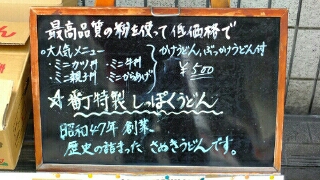 最高品質の粉を使って低価格で
○大人気メニュー
・ミニカツ丼 ・ミニ牛丼
・ミニ親子丼 ・ミニからあげ
かけうどん、ぶっかけうどん付
¥500
☆番丁特製 しっぽくうどん
昭和47年 創業
歴史の詰まった さぬきうどんです。